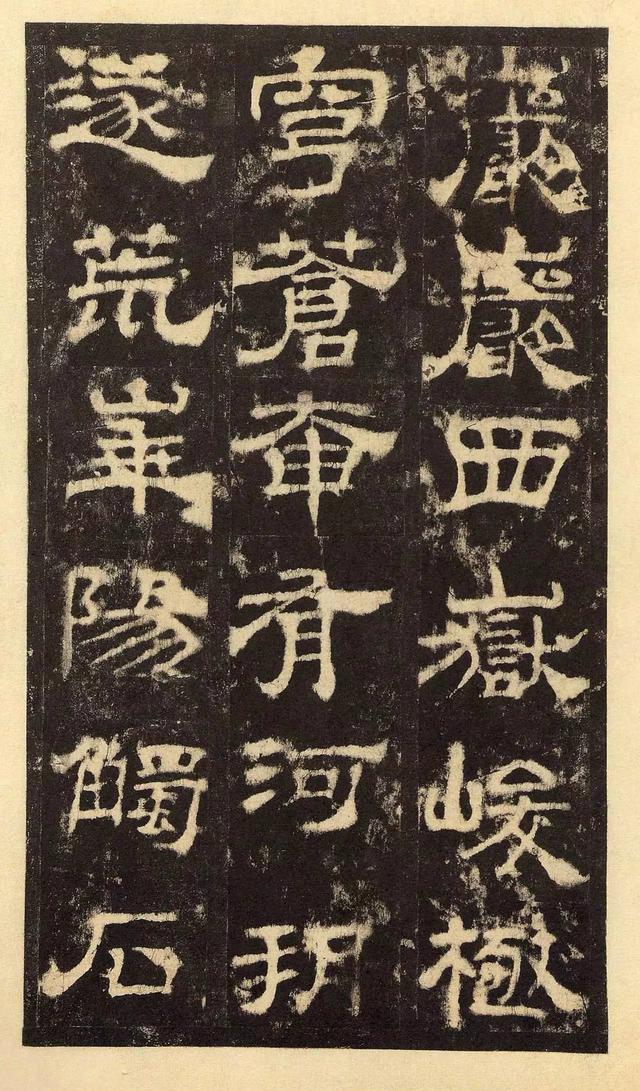 巖巖西嶽峻極
穹蒼奄有河朔
遂荒華陽觸石